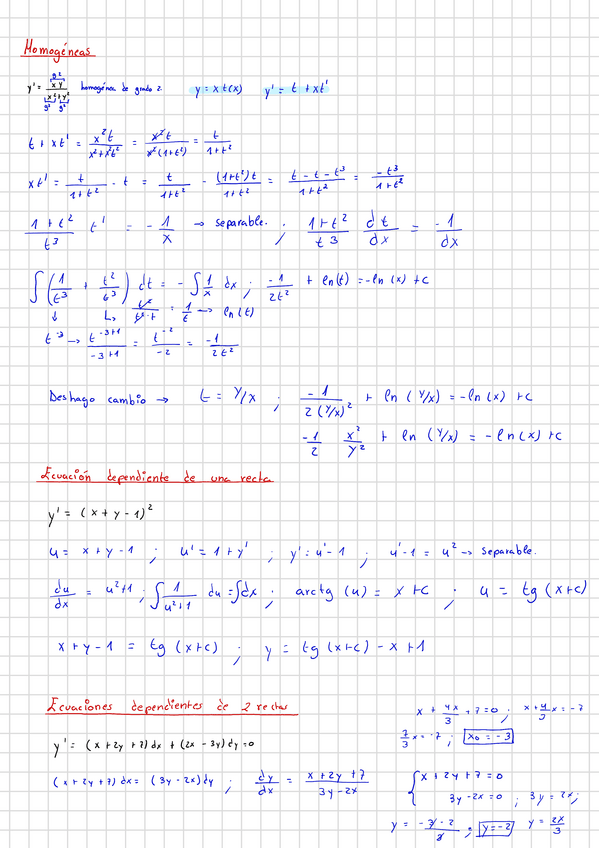 Homogéneas
g²
y' = xy / (x² + y²) homogénea de grado 2. y = x t(x) y' = t + xt'
g² g²
t + xt' = x²t / (x² + x²t²) = x²t / (x²(1+t²)) = t / (1+t²)
xt' = t / (1+t²) - t = t / (1+t²) - (1+t²)t / (1+t²) = (t - t - t³) / (1+t²) = -t³ / (1+t²)
(1+t²) / t³ t' = - 1/x → separable. ; (1+t²) / t³ dt/dx = -1/dx
∫ (1/t³ + t²/t³) dt = - ∫ 1/x dx ; -1/2t² + ln(t) = -ln(x) + C
↓ ↳ t²/(t²·t) = 1/t → ln(t)
t⁻³ → t⁻³⁺¹/(-3+1) = t⁻²/-2 = -1/2t²
Deshago cambio → t = y/x ; -1 / 2(y/x)² + ln(y/x) = -ln(x) + C
-1/2 x²/y² + ln(y/x) = -ln(x) + C
Ecuación dependiente de una recta
y' = (x + y - 1)²
u = x + y - 1 ; u' = 1 + y' ; y' = u' - 1 ; u' - 1 = u² → separable.
du/dx = u² + 1 ; ∫ 1/(u²+1) du = ∫dx ; arctg(u) = x + C ; u = tg(x+c)
x + y - 1 = tg(x+c) ; y = tg(x+c) - x + 1
Ecuaciones dependientes de 2 rectas
x + 2x/3 + 7 = 0 ; x + 4/3 x = -7
7/3 x = -7 ; x₀ = -3
y' = (x + 2y + 7) dx + (2x - 3y) dy = 0
(x + 2y + 7) dx = (3y - 2x) dy ; dy/dx = (x + 2y + 7) / (3y - 2x)
{ x + 2y + 7 = 0
3y - 2x = 0 ; 3y = 2x ;
y = -3·2 / 3 ; y = -2 y = 2x/3